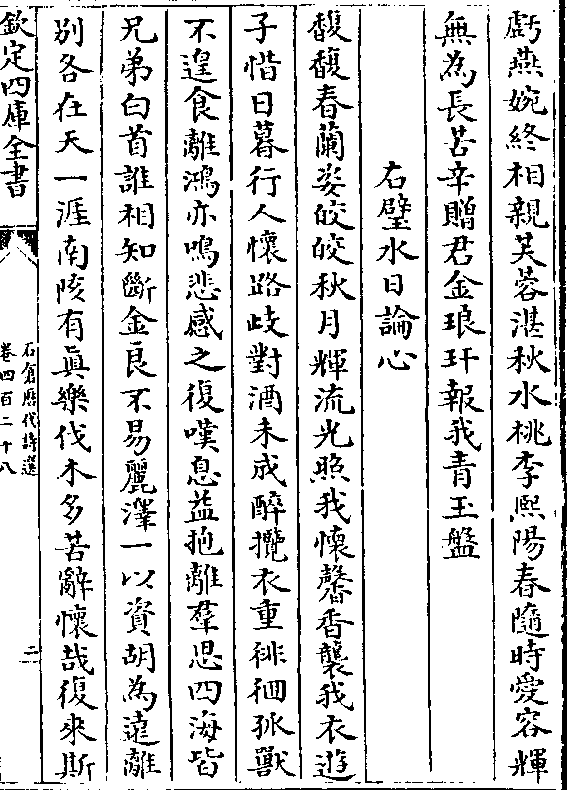 虧燕婉終相親芙蓉湛秋水桃李熙陽春隨時愛容輝
無為長苦辛贈君金琅玕報我青玉盤
右壁水日論心
馥馥春蘭姿皎皎秋月輝流光照我懷馨香襲我衣遊
子惜日暮行人懷路歧對酒未成醉攬衣重徘徊孤獸
不遑食離鴻亦鳴悲感之復嘆息益抱離羣思四海皆
兄弟白首誰相知斷金良不易麗澤一以資胡為遠離
別各在天一涯南陔有真樂伐木多苦辭懷哉復來斯
欽定四庫全書
石倉歷代詩選
卷四百二十八
二